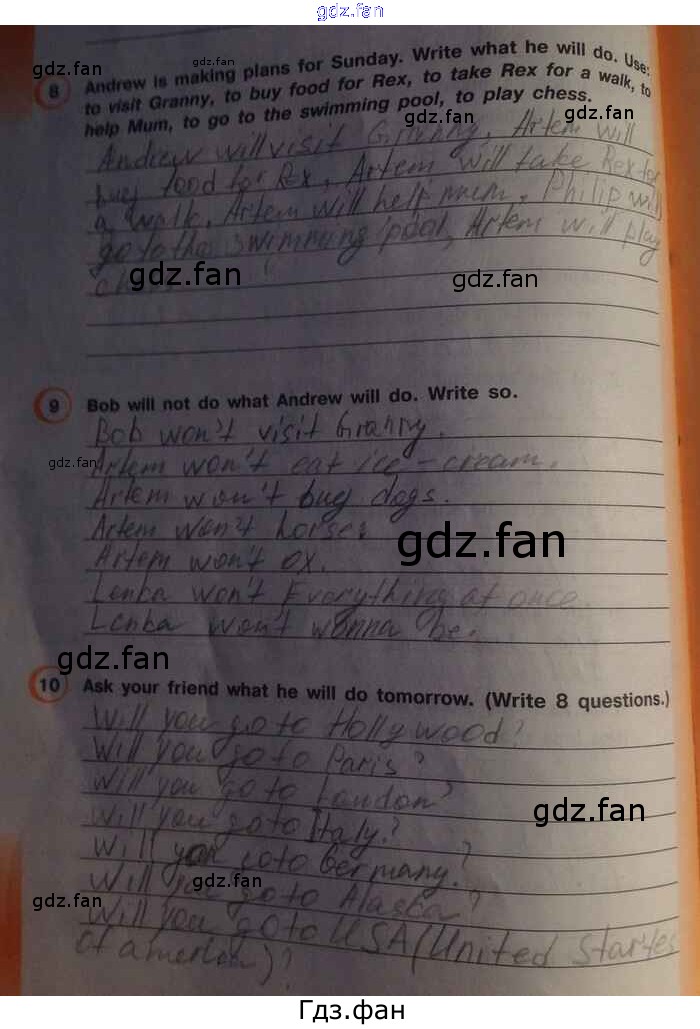 gdz.fan
8 Andrew is making plans for Sunday. Write what he will do. Use:
to visit Granny, to buy food for Rex, to take Rex for a walk, to
help Mum, to go to the swimming pool, to play chess.
Andrew will visit Granny. Artem will
buy food for Rex, Artem will take Rex for
a walk. Artem will help mum. Philip will
go to the swimming pool, Artem will play
gdz.fan
gdz.fan
gdz.fan
gdz.fan
gdz.fan
gdz.fan
9 Bob will not do what Andrew will do. Write so.
Bob won't visit Granny.
gdz.fan
Artem won't eat ice-cream.
Artem won't buy dogs.
Artem won't horses
Artem won't ox.
gdz.fan
Lenka won't Everything at once.
Lenka won't wonna be.
gdz.fan
10 Ask your friend what he will do tomorrow. (Write 8 questions.)
Will you go to Hollywood?
Will you go to Paris?
Will you go to London?
Will you go to Italy?
gdz.fan
Will you goto Germany?
Will you go to Alaska?
gdz.fan
gdz.fan
Will you go to USA (United Startes
Of america)?
Гдз.фан